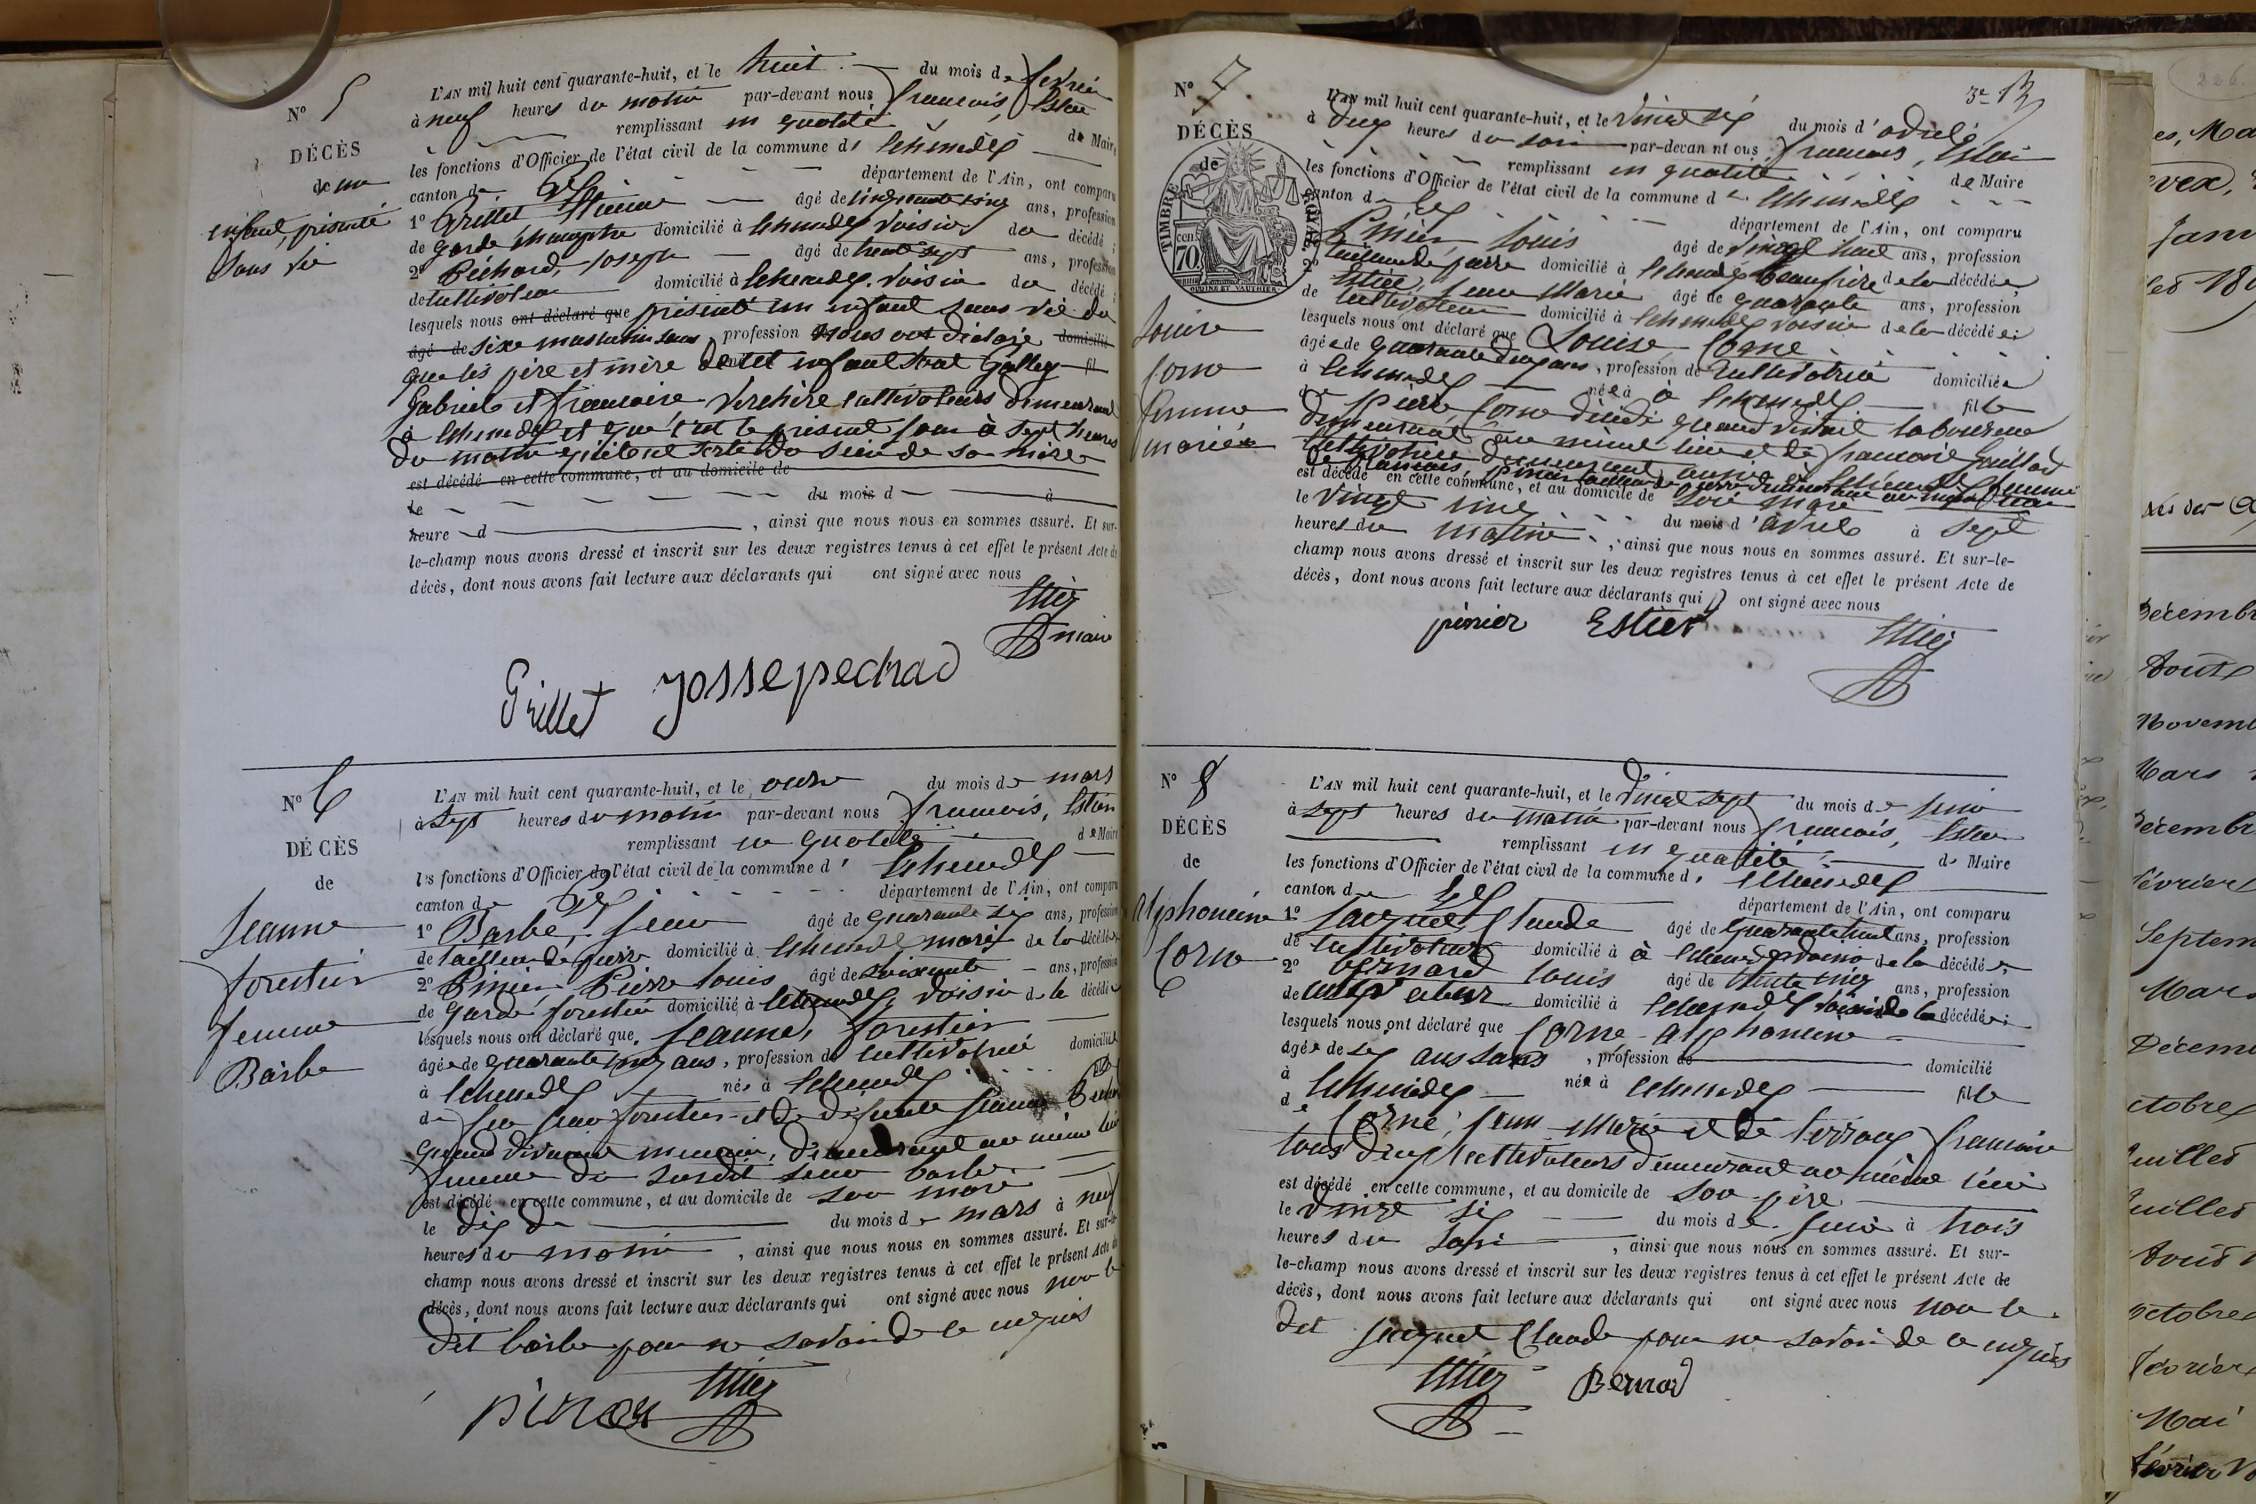 N° 5
DÉCÈS
de un
enfant présenté
sans vie
L'AN mil huit cent quarante-huit, et le huit du mois de février
à neuf heures du matin par-devant nous françois, Estier
remplissant en qualité de Maire
les fonctions d'Officier de l'état civil de la commune d'
canton de département de l'Ain, ont comparu
1° Grillet âgé de cinquante cinq ans, profession
de garde champêtre domicilié à voisin du décédé ;
2° Péchard, Joseph âgé de trente sept ans, profession
de cultivateur domicilié à voisin du décédé ;
lesquels nous ont déclaré que présenté un enfant sans vie du
âgé de sexe masculin sans profession et nous ont déclaré domicilié
que les père et mère de cet enfant sont Galley fil
Gabriel et françoise Verchère cultivateurs demeurant
à et que c'est le présent jour à sept heures
du matin qu'il est sorti du sein de sa mère
est décédé en cette commune, et au domicile de
le du mois d à
heure d , ainsi que nous nous en sommes assuré. Et sur-
le-champ nous avons dressé et inscrit sur les deux registres tenus à cet effet le présent Acte de
décès, dont nous avons fait lecture aux déclarants qui ont signé avec nous
Estier
maire
Grillet Jossepechad
N° 6
DÉCÈS
de
Jeanne
forestier
femme
Barbe
L'AN mil huit cent quarante-huit, et le onze du mois de mars
à sept heures du matin par-devant nous françois, Estier
remplissant en qualité de Maire
les fonctions d'Officier de l'état civil de la commune d'
canton de département de l'Ain, ont comparu
1° Barbe, Jean âgé de quarante six ans, profession
de tailleur de pierre domicilié à mari de la décédée
2° Pinier Pierre Louis âgé de soixante ans, profession
de garde forestier domicilié à voisin de la décédée
lesquels nous ont déclaré que Jeanne, forestier
âgée de quarante cinq ans, profession de cultivatrice domiciliée
à née à fille
de feu Jean forestier et de défunte Jeanne
quand vivaient demeurant au même lieu
femme du susdit Jean barbe
est décédé en cette commune, et au domicile de son mari
le dix du mois de mars à neuf
heures du matin , ainsi que nous nous en sommes assuré. Et sur-le-
champ nous avons dressé et inscrit sur les deux registres tenus à cet effet le présent Acte de
décès, dont nous avons fait lecture aux déclarants qui ont signé avec nous non le
dit barbe pour ne savoir de ce enquis
Estier
pinier
3e 13
N° 7.
DÉCÈS
de
TIMBRE ROYAL
70 cen
Louise
Corne
femme
mariée
L'AN mil huit cent quarante-huit, et le vingt six du mois d'avril
à deux heures du soir par-devant nous françois, Estier
remplissant en qualité de Maire
les fonctions d'Officier de l'état civil de la commune d'
canton de département de l'Ain, ont comparu
Pinier, Louis âgé de vingt huit ans, profession
tailleur de pierre domicilié à beaufrère de la décédée
2° Estier, Jean Marie âgé de quarante ans, profession
de cultivateur domicilié à voisin de la décédée ;
lesquels nous ont déclaré que Louise Corne
âgée de quarante deux ans, profession de cultivatrice domiciliée
à née à fille
de Pierre Corne décédé quand vivait laboureur
demeurant au même lieu et de françoise Guillard
cultivatrice demeurant aussi à femme
de françois, Pinier tailleur de pierre demeurant au même lieu
est décédé en cette commune, et au domicile de son mari
le vingt cinq du mois d'avril à sept
heures du matin , ainsi que nous nous en sommes assuré. Et sur-le-
champ nous avons dressé et inscrit sur les deux registres tenus à cet effet le présent Acte de
décès, dont nous avons fait lecture aux déclarants qui ont signé avec nous
pinier Estier Estier
N° 8
DÉCÈS
de
Alphonsine
Corne
L'AN mil huit cent quarante-huit, et le vingt sept du mois de juin
à sept heures du matin par-devant nous françois, Estier
remplissant en qualité de Maire
les fonctions d'Officier de l'état civil de la commune d'
canton de département de l'Ain, ont comparu
1° Jacquet, Claude âgé de quarante huit ans, profession
de cultivateur domicilié à voisin de la décédée,
2° Bernard Louis âgé de trente cinq ans, profession
de cultivateur domicilié à voisin de la décédée ;
lesquels nous ont déclaré que Corne alphonsine
âgée de six ans sans , profession de domicilié
à née à fille
de Corne, Jean Marie et de françoise
tous deux cultivateurs demeurant au même lieu
est décédé en cette commune, et au domicile de son père
le vingt six du mois de juin à trois
heures du soir , ainsi que nous nous en sommes assuré. Et sur-
le-champ nous avons dressé et inscrit sur les deux registres tenus à cet effet le présent Acte de
décès, dont nous avons fait lecture aux déclarants qui ont signé avec nous non le
dit jacquet Claude pour ne savoir de ce enquis
Estier Bernad
226.